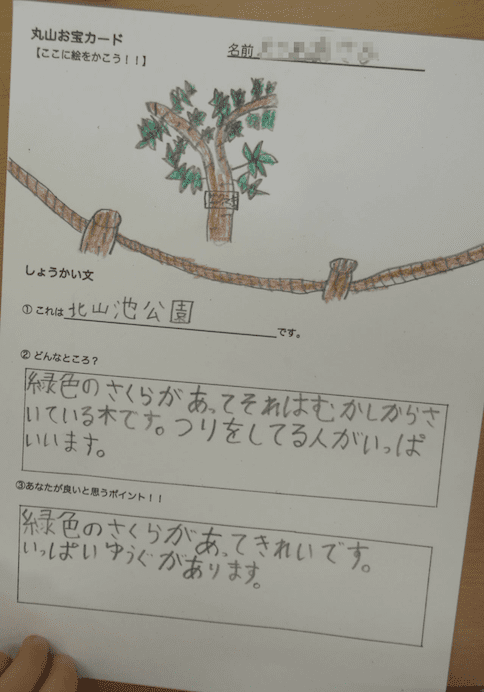 丸山お宝カード
【ここに絵をかこう！！】
名前
しょうかい文
① これは北山池公園です。
② どんなところ？
緑色のさくらがあってそれはむかしからさ
いている木です。つりをしてる人がいっぱ
いいます。
③あなたが良いと思うポイント！！
緑色のさくらがあってきれいです。
いっぱいゆうぐがあります。